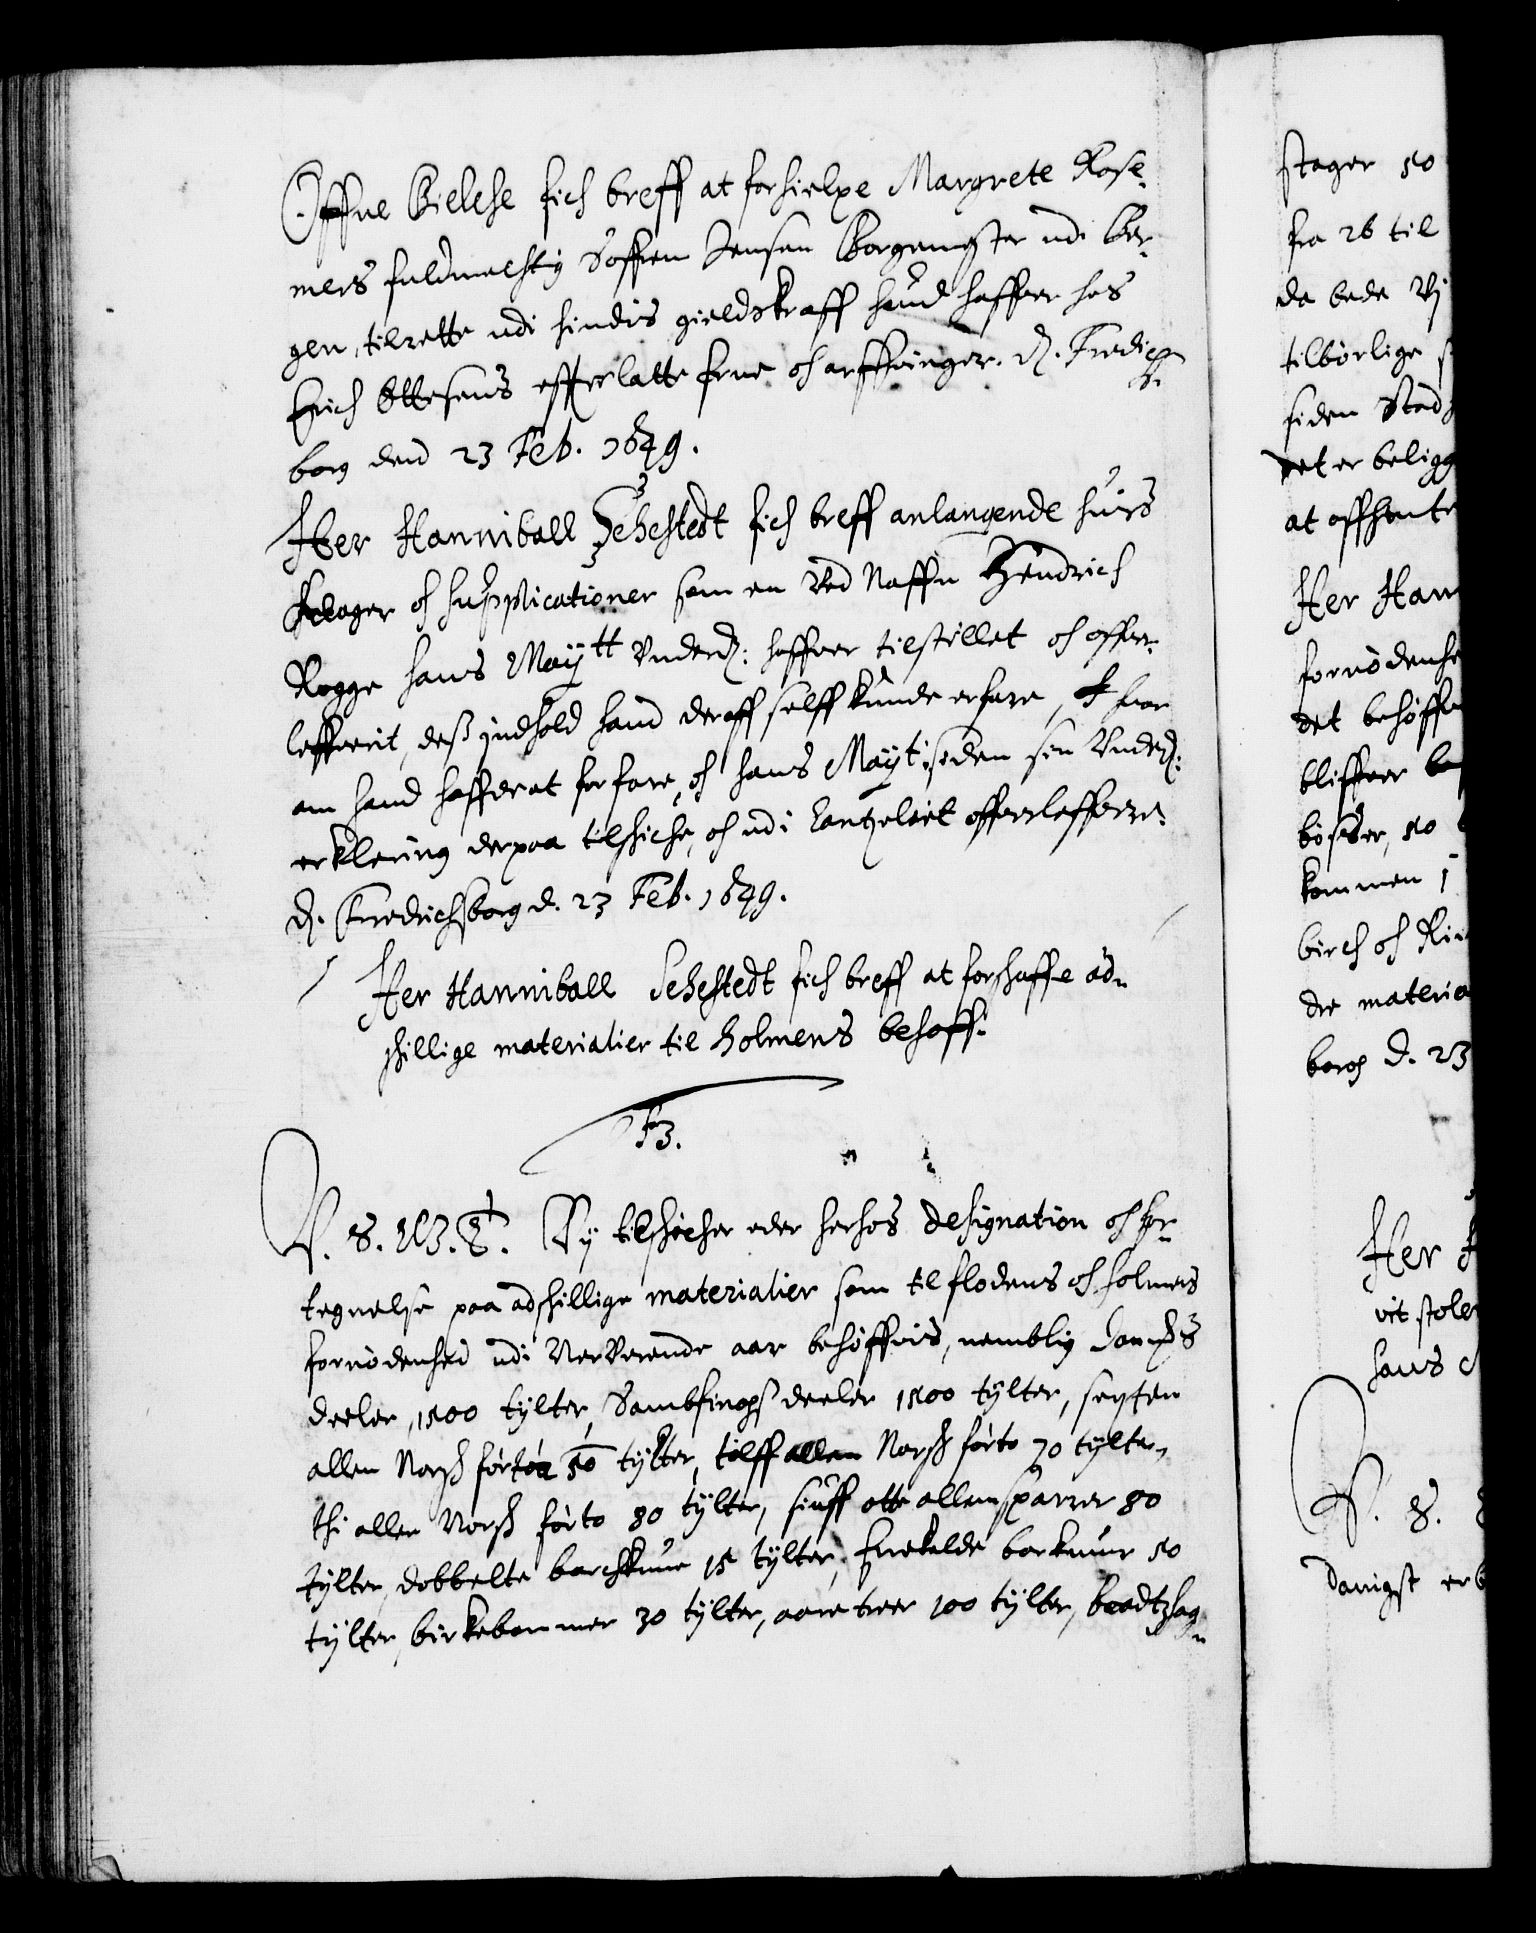 Offue Bielche fich breff at forhielpe Margrete Rose,
mers fuldmechtig Søffren Jensen Borgemester udi Ber,
gen, tilrette udi hindis gieldskraff hand haffuer hos
Erich Ottesens effterlatte frue och arffuinger. D. Fredichs
borg dend 23 Feb. 1649.
Her Hanniball Sehestedt fich breff anlangende huis
klager och supplicationer som en ved Naffn Hendrich
Rogge hans Maytt Underd: haffuer tilstillet och offuer,
leffuerit, dess jndhold hand deraff selff kunde erfare,
om hand haffuer at forfare, och hans Mayt: siden sin Underd:
erklering derpaa tilschiche, och udi Cantzeliet offuerleffuere.
D. Fredrichsborg d. 23 Feb. 1649.
Her Hanniball Sehestedt fich breff at forschaffe ad,
schillige materialier til Holmens behoff.
F3.
V. S. G. T. Vy tilschicher eder herhos designation och for,
tegnelse paa adschillige materialier som til flodens och holmens
fornødenhed udi Nerverende aar behøffuis, nemblig
deeler, 1500 tylter, Sambfings deeler 1500 tylter, seyten
allen Norsch førtoa 50 tylter, tolff allen Norsch førto 70 tylter,
thi allen Norsch førto 80 tylter, siuff otte allen sparrer 80
tylter, dobbelte barchkuue 15 tylter, Enckelde barkuur 50
tylter, birkebommer 30 tylter, aare treer 100 tylter, baadtzhag,
stager 50
fra 26 til
da bede Vj
tilbørlige
siden Stad
det er beligg
at affhente
Her Han
fornødenhe
det behøffue
bliffuer
bøsser, 50
kommen j
birch och
die materia
borg d. 23
Her
vit stole
hans
V. S.
danigst erb